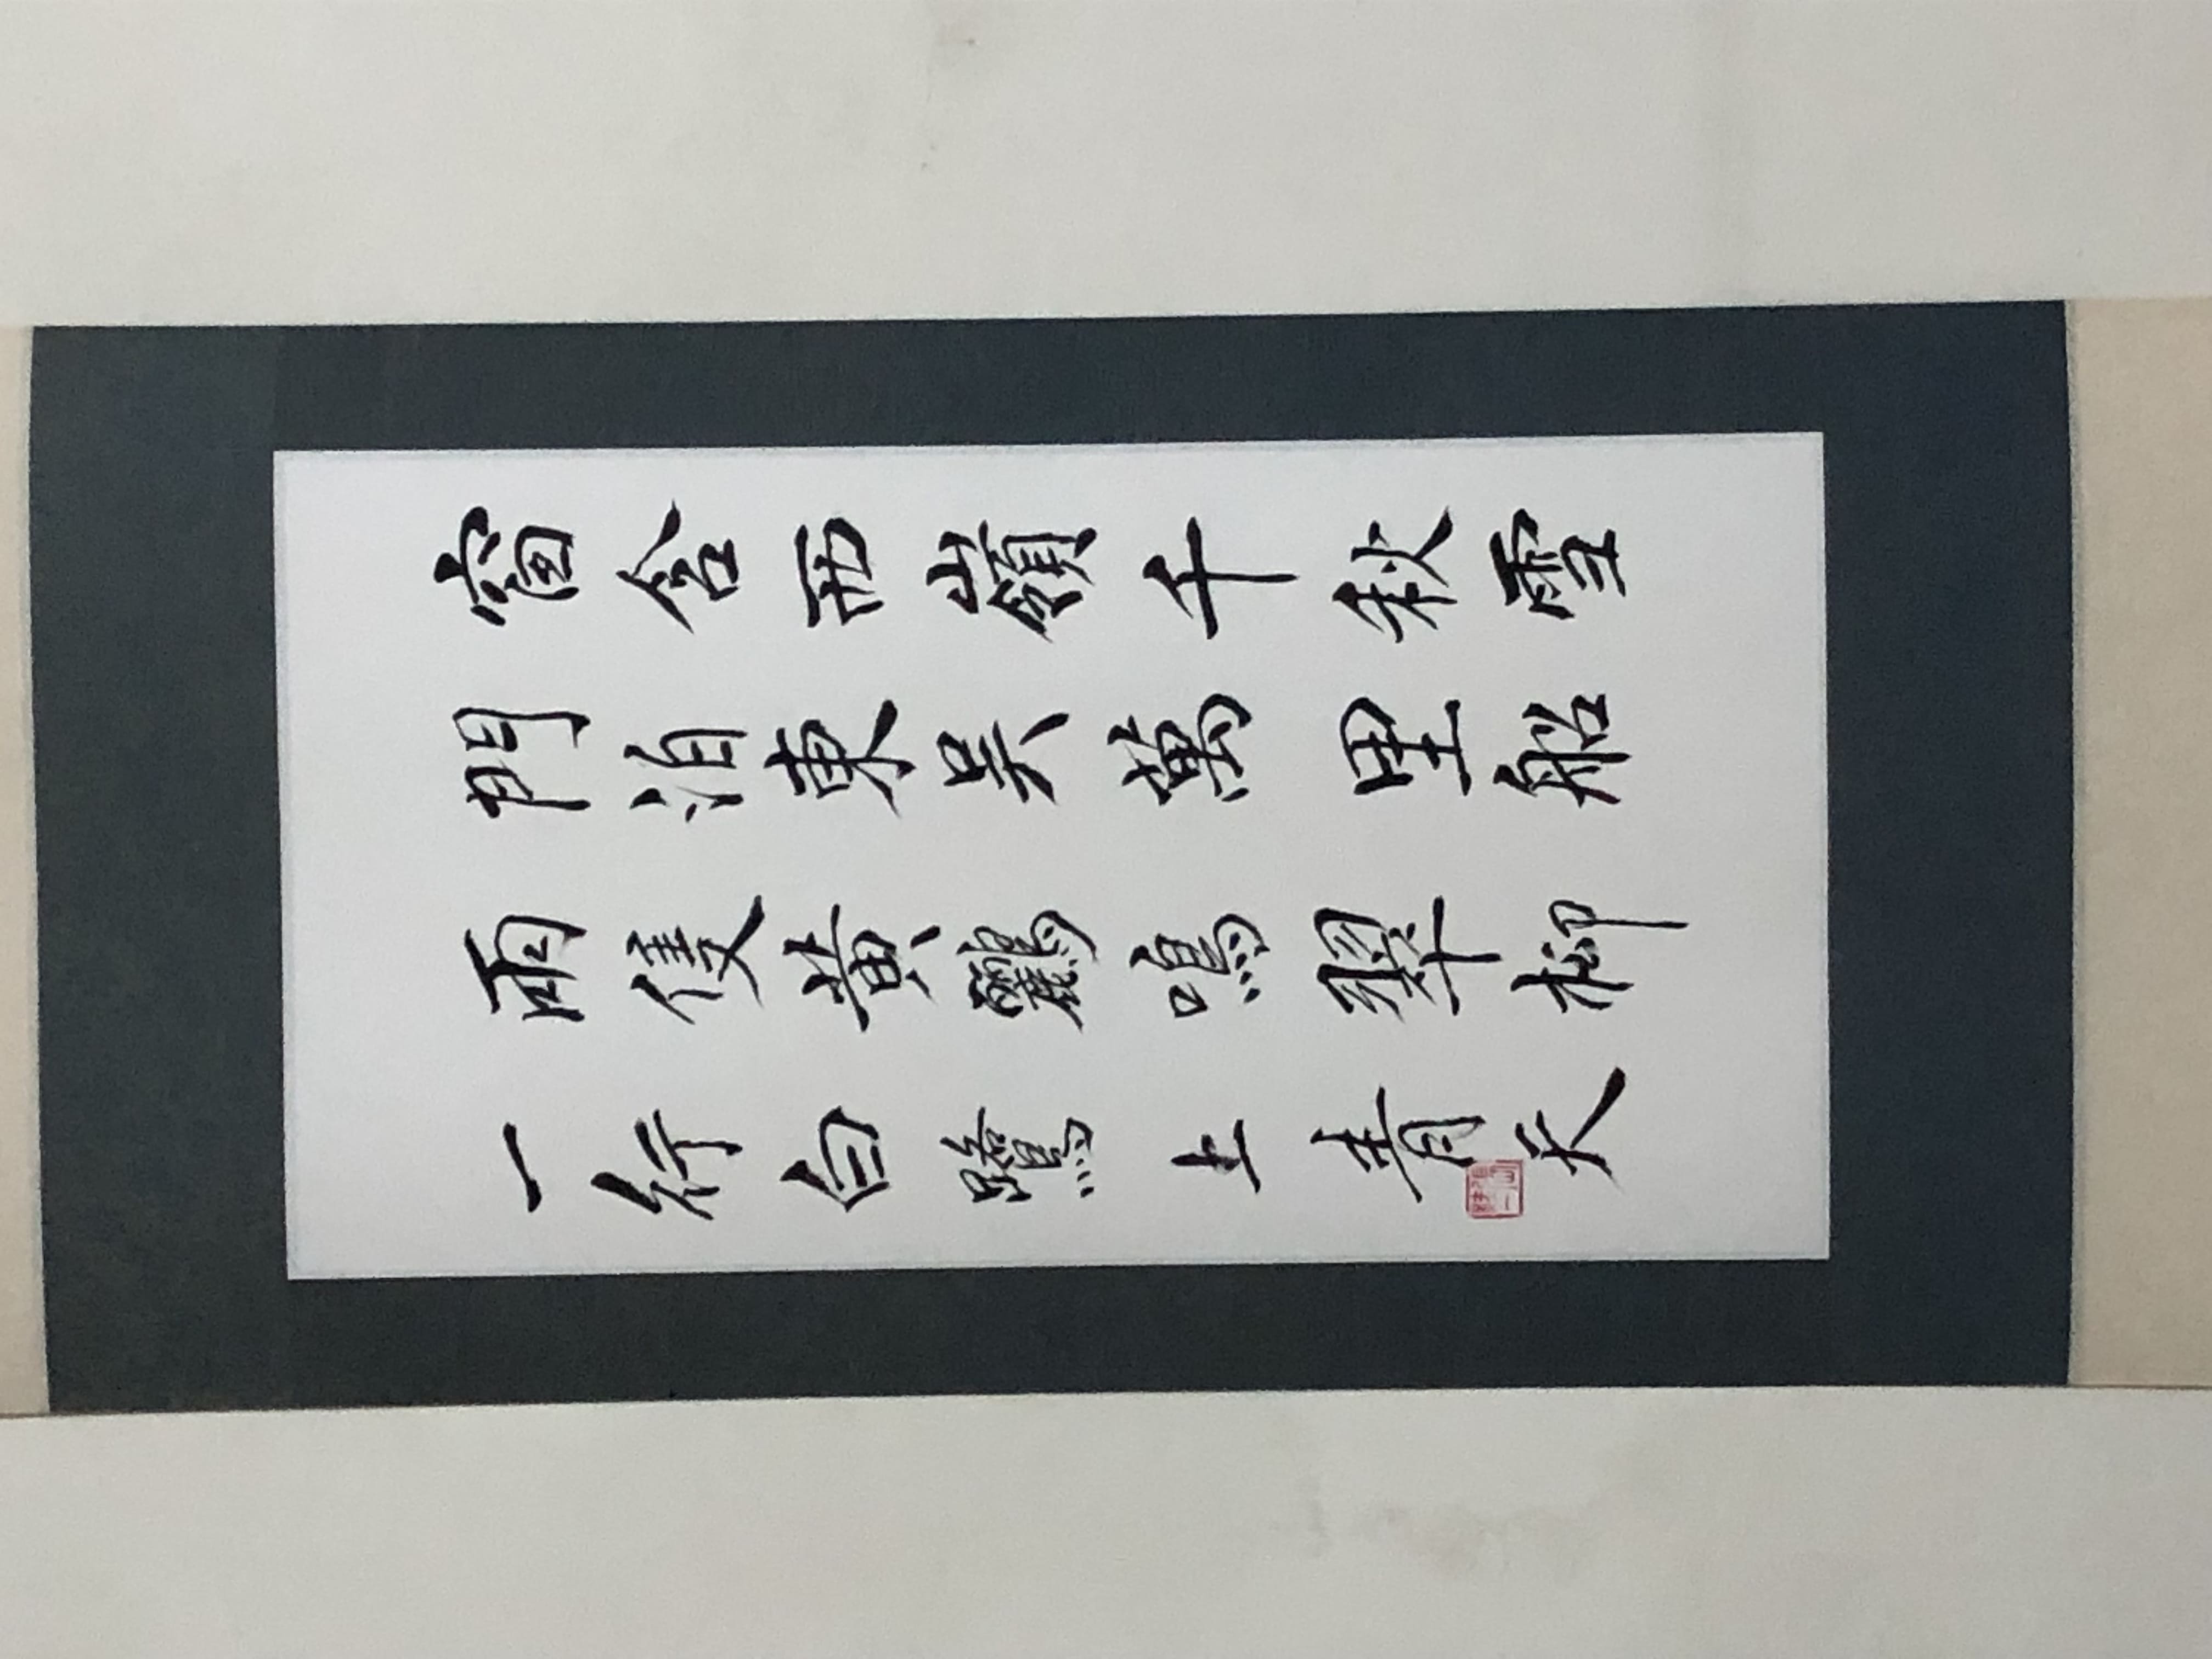 窗含西嶺千秋雪
門泊東吳萬里船
兩隻黃鸝鳴翠柳
一行白鷺上青天